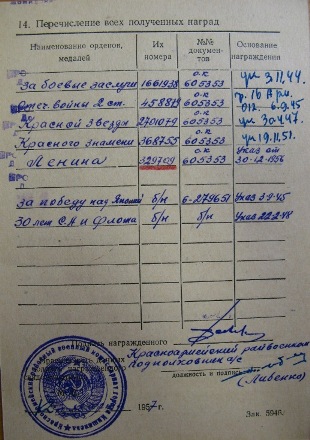 14. Перечисление всех полученных наград
Наименование орденов, медалей
Их номера
№№ документов
Основание награждения
За боевые заслуги 1661938 о.к 605353 ук 3.11.44.
Отеч. войны 2 ст. 458819 605353 пр. 16 В.А. 012 6.9.45
Красной Звезды 2701079 о.к 605353 ук 30.4.47.
Красного знамени 368755 о.к 605353 ук 19.11.51.
Ленина 329709 о.к 605353 Указ от 30-12-1956
За победу над Японией б/н б-279651 Указ 3.9.45
30 лет С.А и Флота б/н б/н Указ 22.2.48
Подпись награжденного
Красноармейский райвоенком
Подполковник а/с
должность и подпись
(Ливенко)
1957 г.
Зак. 5946.